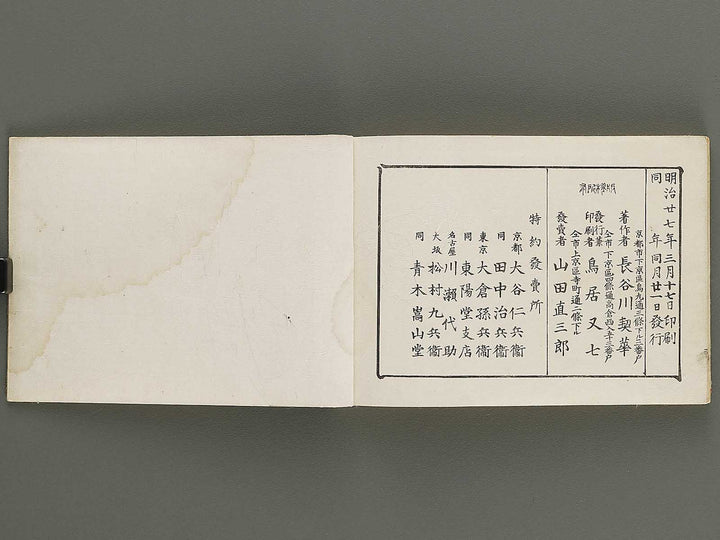 明治廿七年三月十七日印刷
同　年同月廿一日發行
京都市下京區烏丸通三條下ル三番戸
著作者　長谷川契華
仝市下京區四條通高倉西入十三番戸
發行兼印刷者　鳥居又七
仝市上京區寺町通二條下ル
發賣者　山田直三郎
特約發賣所
京都　大谷仁兵衞
同　田中治兵衞
東京　大倉孫兵衞
同　東陽堂支店
名古屋　川瀬代助
大坂　松村九兵衞
同　青木嵩山堂